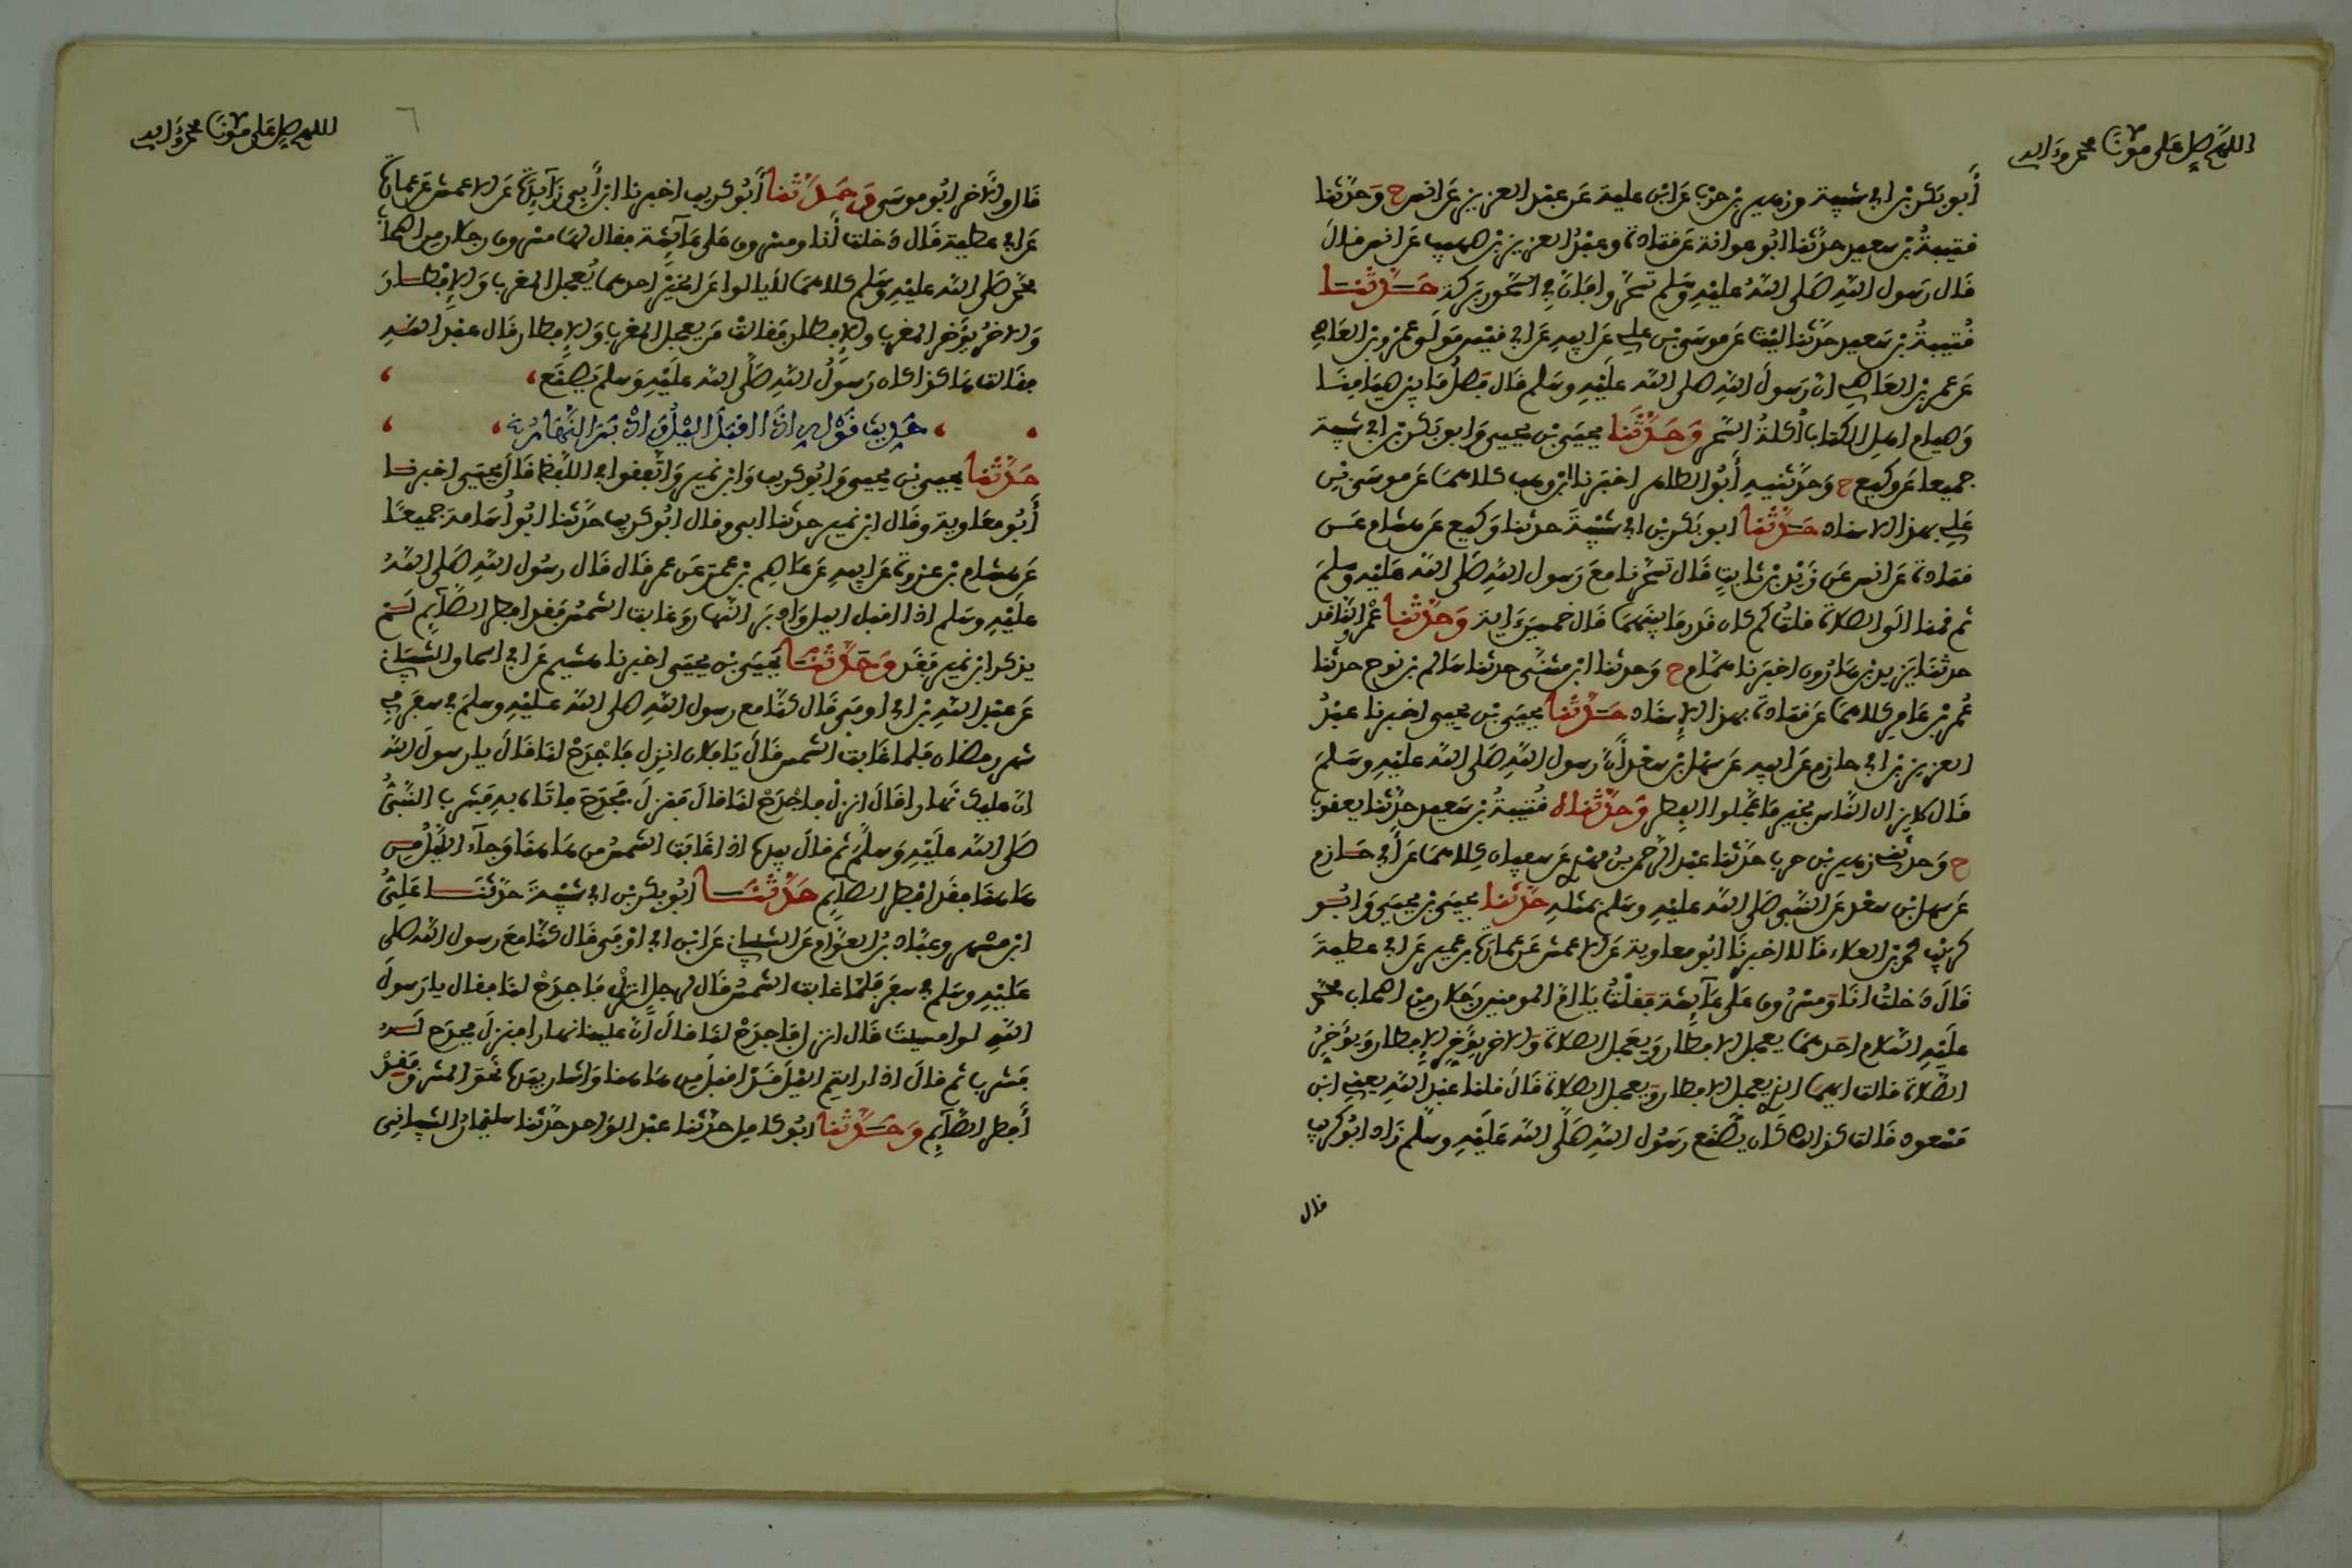 اللهم صل على مولانا محمد وءاله
أبو بكر بن ابي شيبة وزهير بن حرب عن ابن علية عن عبد العزيز عن انس ح وحدثنا
قتيبة بن سعيد حدثنا ابو عوانة عن قتادة وعبد العزيز بن صهيب عن انس قال
قال رسول الله صلى الله عليه وسلم تسحروا فإن في السحور بركة حدثنا
قتيبة بن سعيد حدثنا ليث عن موسى بن علي عن ابيه عن ابي قيس مولى عمرو بن العاص
عن عمر بن العاص ان رسول الله صلى الله عليه وسلم قال فصل ما بين صيامنا
وصيام اهل الكتاب أكلة السحر وحدثنا يحيى بن يحيى وابو بكر بن ابي شيبة
جميعا عن وكيع ح وحدثنيه أبو الطاهر اخبرنا ابن وهب كلاهما عن موسى بن
علي بهذا الاسناد حدثنا ابو بكر بن ابي شيبة حدثنا وكيع عن هشام عن
قتادة عن انس عن زيد بن ثابت قال تسحرنا مع رسول الله صلى الله عليه وسلم
ثم قمنا الى الصلاة قلت كم كان قدر ما بينهما قال خمسين ءاية وحدثنا عمرو الناقد
حدثنا يزيد بن هارون اخبرنا همام ح وحدثنا ابن مثنى حدثنا سالم بن نوح حدثنا
عمر بن عامر كلاهما عن قتادة بهذا الاسناد حدثنا يحيى بن يحيى اخبرنا عبد
العزيز بن ابي حازم عن ابيه عن سهل بن سعد أن رسول الله صلى الله عليه وسلم
قال لا يزال الناس بخير ما عجلوا الفطر وحدثناه قتيبة بن سعيد حدثنا يعقوب
ح وحدثني زهير بن حرب حدثنا عبد الرحمن بن مهدي عن سفيان كلاهما عن أبي حازم
عن سهل بن سعد عن النبي صلى الله عليه وسلم بمثله حدثنا يحيى بن يحيى وابو
كريب محمد بن العلاء قالا اخبرنا ابو معاوية عن الاعمش عن عمارة بن عمير عن ابي عطية
قال دخلت انا ومسروق على عائشة فقلت يا ام المومنين رجلان من اصحاب محمد
عليه السلام احدهما يعجل الافطار ويعجل الصلاة والاخر يؤخر الافطار ويؤخر
الصلاة قالت ايهما الذي يعجل الافطار ويعجل الصلاة قال قلنا عبد الله يعني ابن
مسعود قالت كذالك كان يصنع رسول الله صلى الله عليه وسلم زاد ابو كريب
قال
اللهم صل على مولانا محمد وءاله
٦
قال والاخر ابو موسى وحدثنا أبو كريب اخبرنا ابن أبي زائدة عن الاعمش عن عمارة
عن ابي عطية قال دخلت أنا ومسروق على عائشة فقال لها مسروق رجلان من اصحاب
محمد صلى الله عليه وسلم كلاهما لا يالوا عن الخير احدهما يعجل المغرب والافطار
والاخر يؤخر المغرب والافطار فقالت من يعجل المغرب والافطار قال عبد الله
فقالت هاكذا كان رسول الله صلى الله عليه وسلم يصنع
حديث قوله اذا اقبل اليل وادبر النهار
حدثنا يحيى بن يحيى وابو كريب وابن نمير واتفقوا في اللفظ قال يحيى اخبرنا
أبو معاوية وقال ابن نمير حدثنا ابي وقال ابو كريب حدثنا ابو أسامة جميعا
عن هشام بن عروة عن ابيه عن عاصم بن عمر عن عمر قال قال رسول الله صلى الله
عليه وسلم اذا اقبل اليل وادبر النهار وغابت الشمس فقد افطر الصائم لم
يذكر ابن نمير فقد وحدثنا يحيى بن يحيى اخبرنا هشيم عن ابي اسحاق الشيباني
عن عبد الله بن ابي اوفى قال كنا مع رسول الله صلى الله عليه وسلم في سفر في
شهر رمضان فلما غابت الشمس قال يا فلان انزل فاجدح لنا قال يا رسول الله
ان عليك نهارا قال انزل فاجدح لنا قال فنزل فجدح فاتاه به فشرب النبي
صلى الله عليه وسلم ثم قال بيده اذا غابت الشمس من هاهنا وجاء الليل من
هاهنا فقد افطر الصائم حدثنا ابو بكر بن ابي شيبة حدثنا علي
ابن مسهر وعباد بن العوام عن الشيباني عن ابن ابي اوفى قال كنا مع رسول الله صلى
عليه وسلم في سفر فلما غابت الشمس قال لرجل انزل فاجدح لنا فقال يا رسول
الله لو امسيت قال انزل فاجدح لنا قال أن علينا نهارا فنزل فجدح له
فشرب ثم قال اذا رايتم اليل قد اقبل من هاهنا واشار بيده نحو المشرق فقد
أفطر الصائم وحدثنا ابو كامل حدثنا عبد الواحد حدثنا سليمان الشيباني